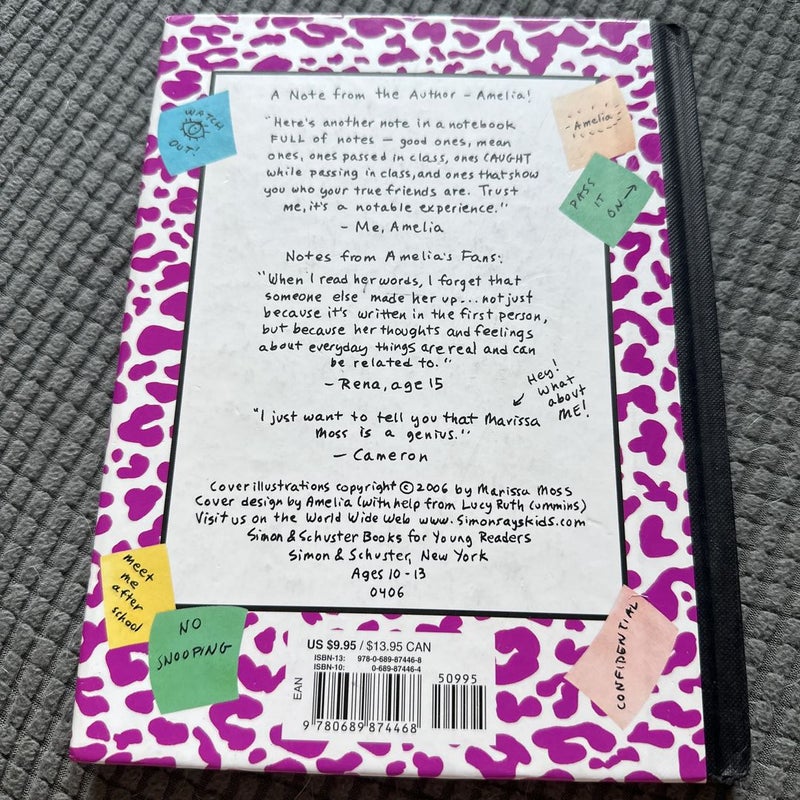 WATCH
OUT!
Amelia
PASS
IT
ON →
A Note from the Author – Amelia!
"Here's another note in a notebook
FULL of notes – good ones, mean
ones, ones passed in class, ones CAUGHT
while passing in class, and ones that show
you who your true friends are. Trust
me, it's a notable experience."
– Me, Amelia
Notes from Amelia's Fans:
"When I read her words, I forget that
someone else made her up... not just
because it's written in the first person,
but because her thoughts and feelings
about everyday things are real and can
be related to."
– Rena, age 15
Hey!
What
about
ME!
"I just want to tell you that Marissa
Moss is a genius."
– Cameron
Cover illustrations copyright © 2006 by Marissa Moss
Cover design by Amelia (with help from Lucy Ruth Cummins)
Visit us on the World Wide Web www.Simonsayskids.com
Simon & Schuster Books for Young Readers
Simon & Schuster, New York
Ages 10-13
0406
meet
me
after
school
NO
SNOOPING
CONFIDENTIAL
US $9.95 / $13.95 CAN
ISBN-13: 978-0-689-87446-8
ISBN-10: 0-689-87446-4
EAN
50995
9 780689 874468